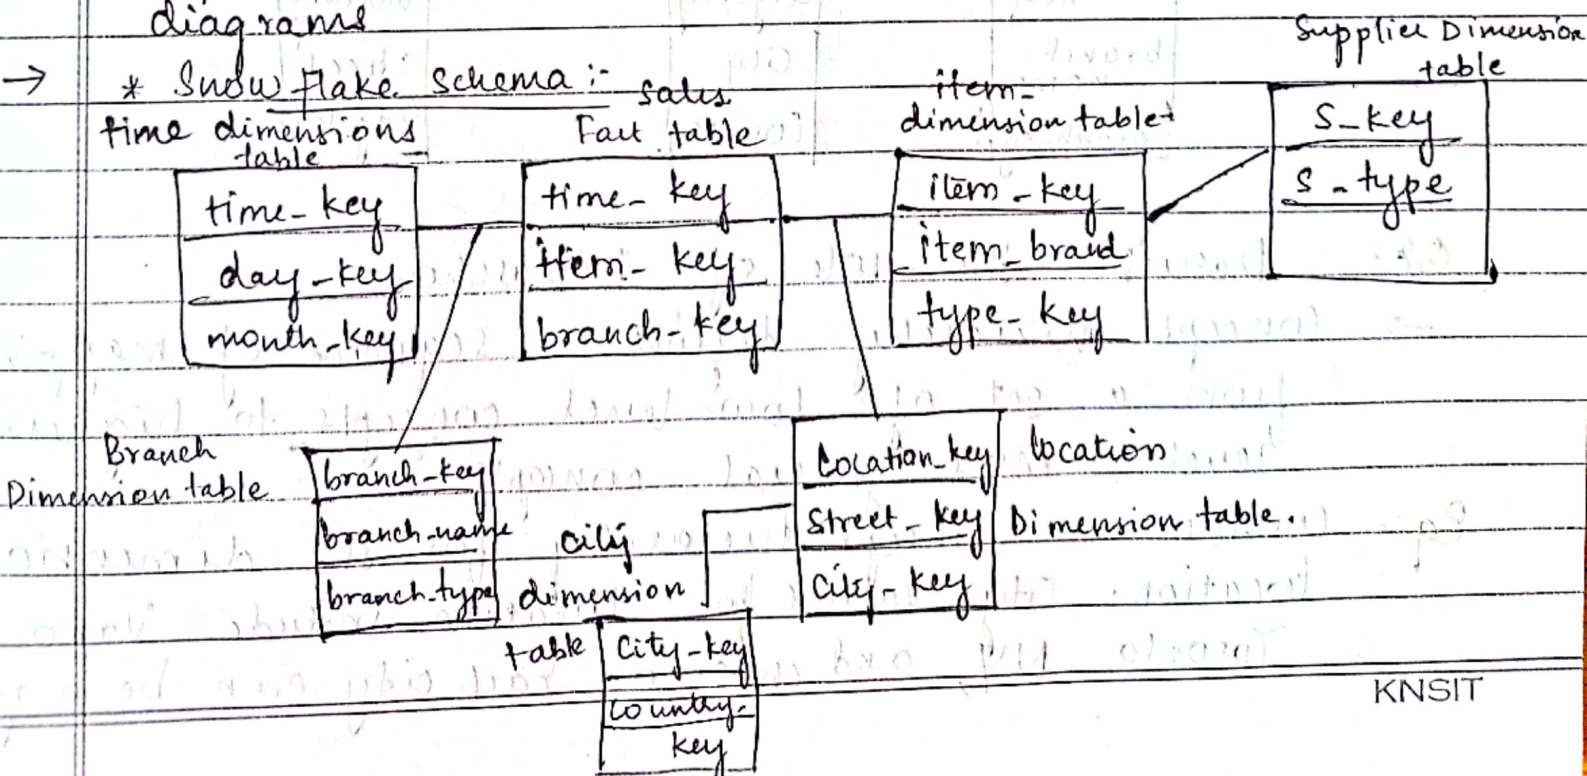 diagrams
→ * Snow flake schema :-
time dimensions table
time_key
day_key
month_key
sales
Fact table
time_key
item_key
branch_key
item_
dimension table
item_key
item_brand
type_key
Supplier Dimension
table
S_key
s_type
Branch
Dimension table
branch_key
branch_name
branch_type
city
dimension
table
City_key
country_
key
Location_key
Street_key
City_key
location
Dimension table.
KNSIT